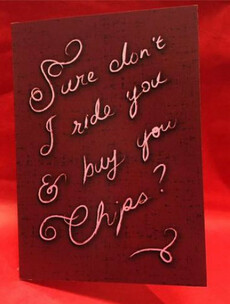 Sure don't
I ride you
& buy you
Chips?